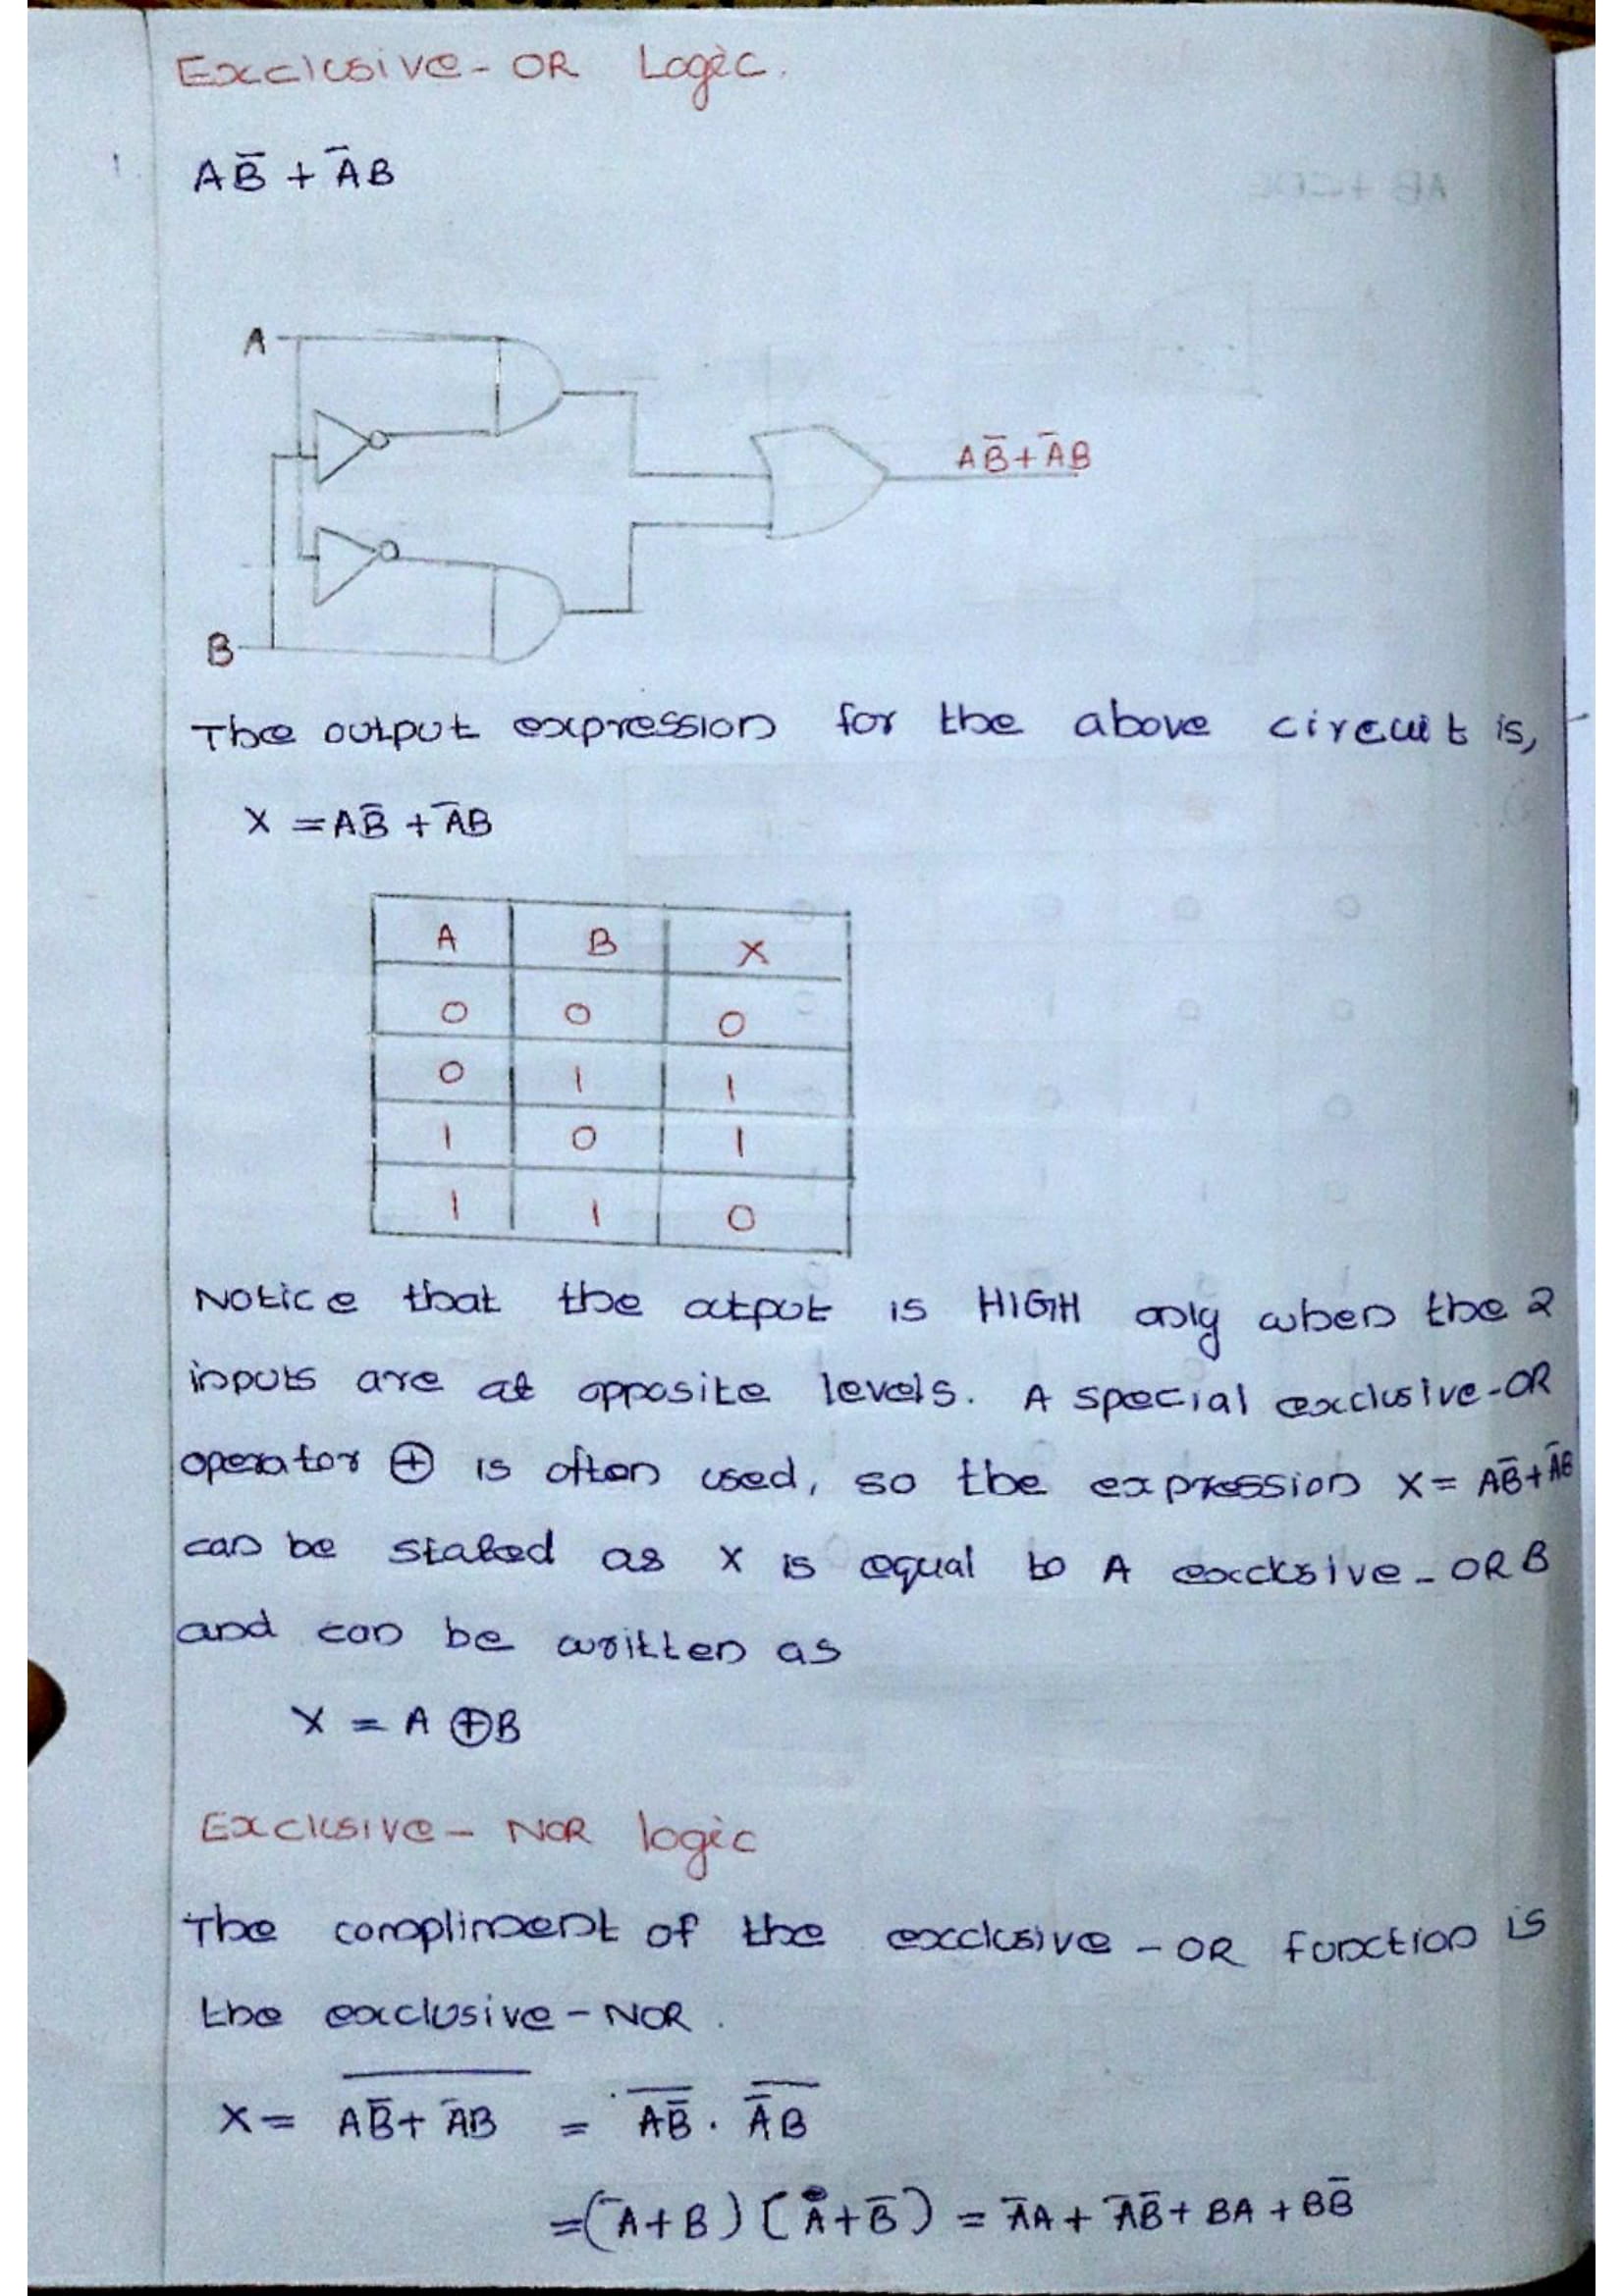 Exclusive-OR Logic.
AB̅ + A̅B
A
AB̅+A̅B
B
The output expression for the above circuit is,
X = AB̅ + A̅B
A B X
0 0 0
0 1 1
1 0 1
1 1 0
Notice that the output is HIGH only when the 2
inputs are at opposite levels. A special exclusive-OR
operator ⊕ is often used, so the expression X= AB̅+A̅B
can be stated as X is equal to A exclusive-OR B
and can be written as
X = A ⊕B
Exclusive-NOR logic
The compliment of the exclusive-OR function is
the exclusive-NOR.
X = \overline{AB̅+ A̅B} = \overline{AB̅} . \overline{A̅B}
=(A̅+B) (A+B̅) = A̅A + A̅B̅+ BA + BB̅